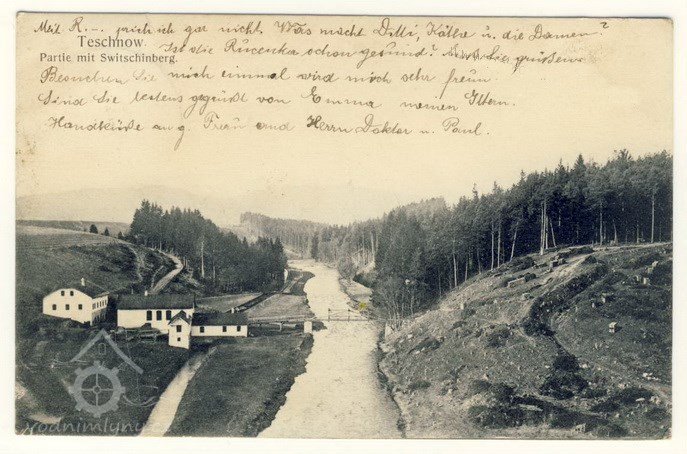 Mit R. –. sprich ich gar nicht. Was macht Ditti, Käthe u. die Damen?
Teschnow.
Ist die Rucenka schon gesund? Sie grüßen
Partie mit Switschinberg.
Besuchen Sie mich einmal wird mich sehr freun
Sind Sie bestens gegrüßt von Emma meinen Eltern.
Handküße an g. Frau und Herrn Doktor u. Paul.
vodnimlyny.cz